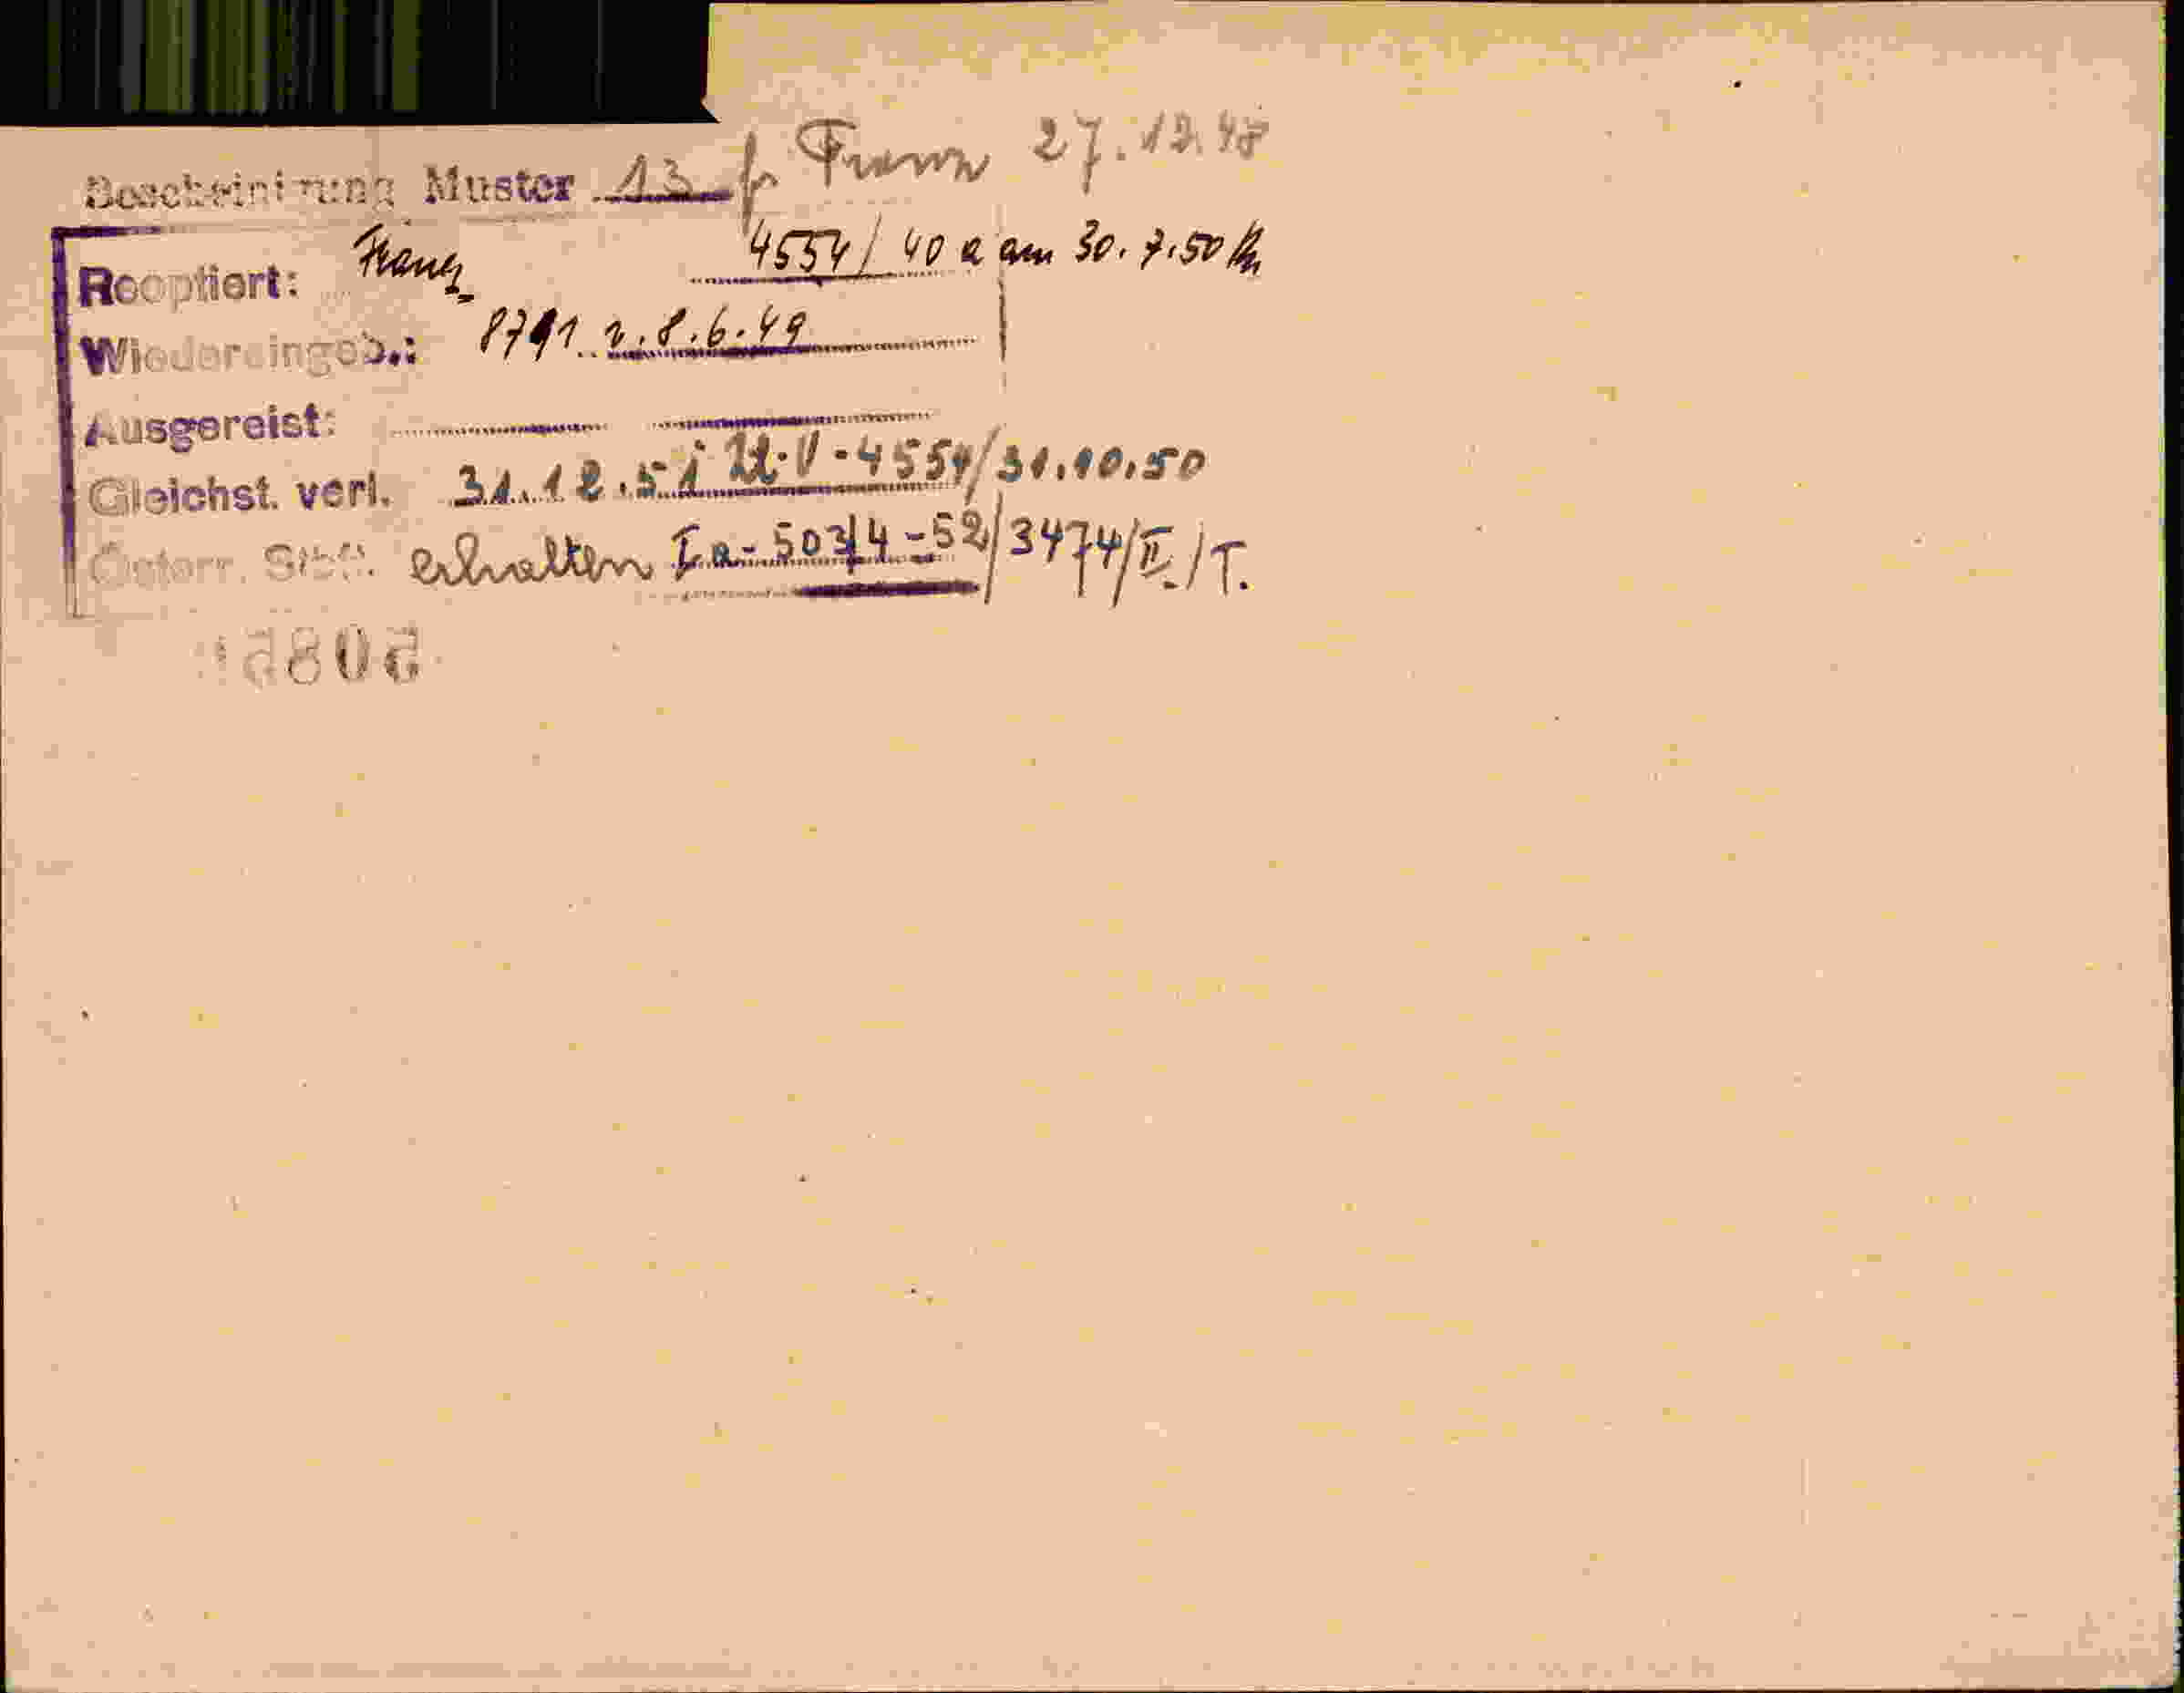 Bescheinigung Muster 13 fr Franz 27.12.48
Reoptiert: Franz 4554/ 40 a am 30.7.50
Wiedereingeb.: 8791 v. 8.6.49
Ausgereist:
Gleichst. verl. 31.12.51 -4554/31.10.50
Österr. Stbg. erhalten Ia-503/4-52/3474/II./T.